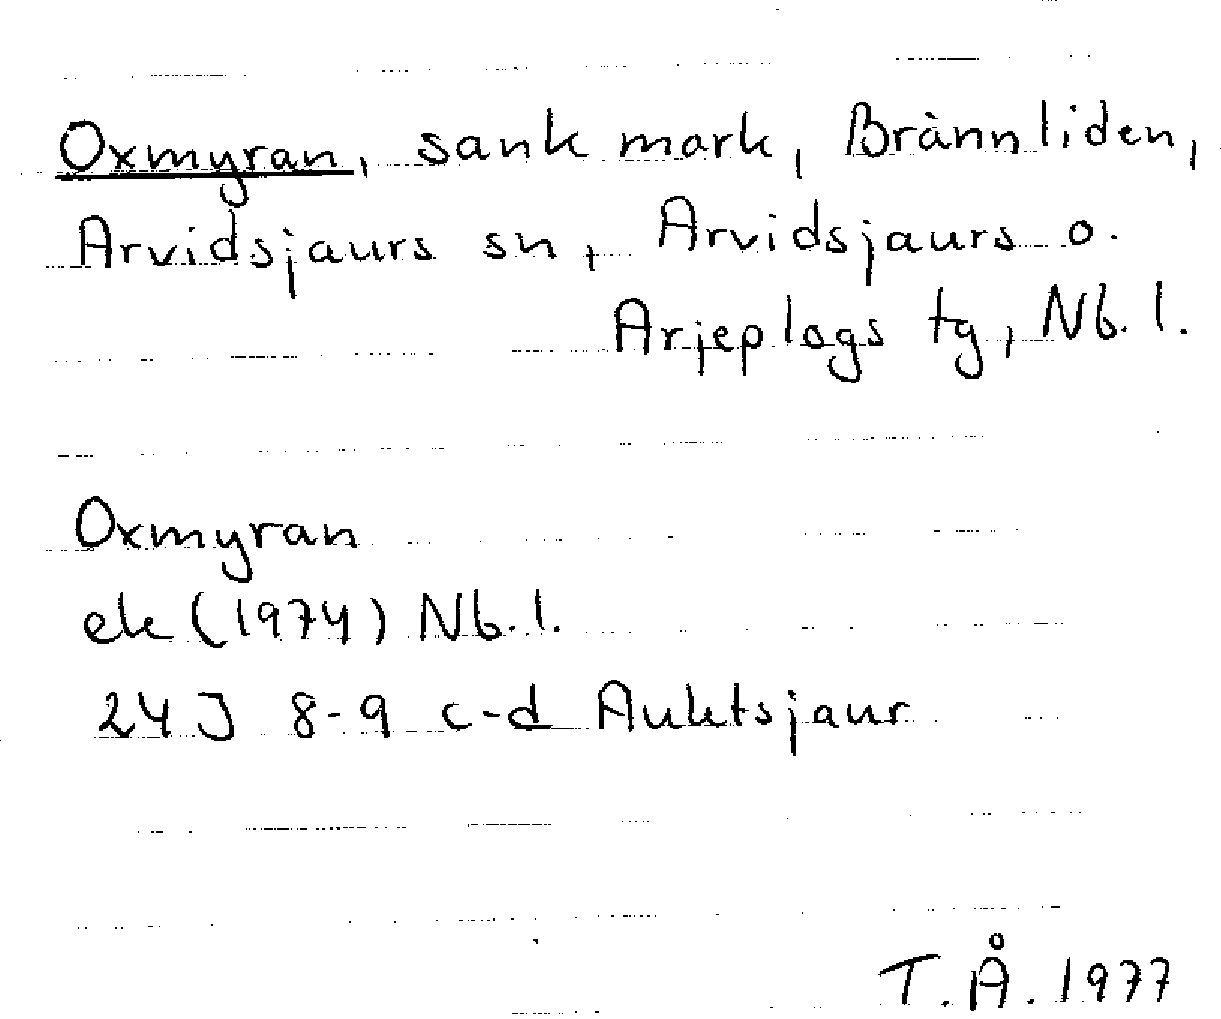 Oxmyran, sank mark, Brännliden,
Arvidsjaurs sn, Arvidsjaurs o.
Arjeplogs tg, Nb. l.
Oxmyran
ek (1974) Nb. l.
24 J 8-9 c-d Auktsjaur
T. Å. 1977